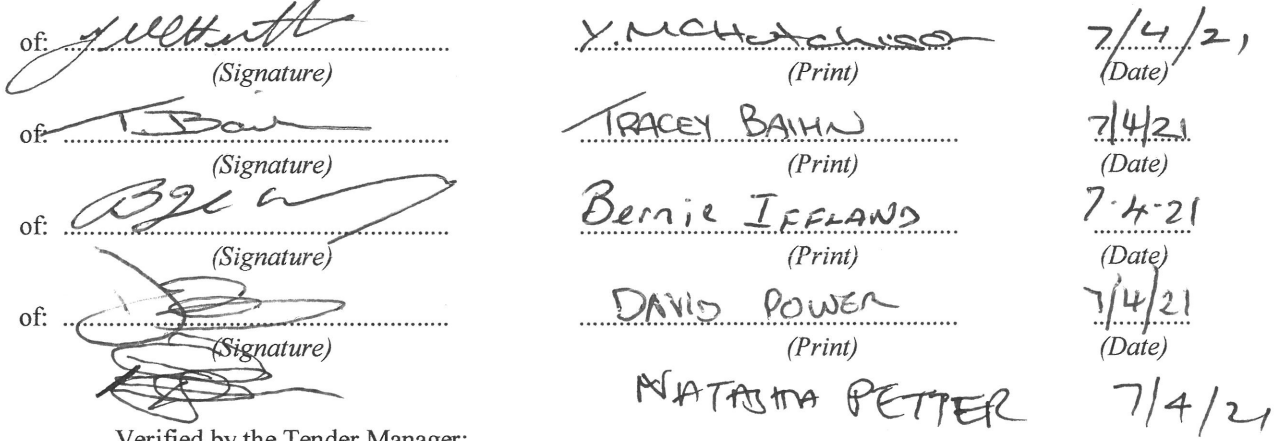 of: Y. McHutchison 7/4/21
(Signature) (Print) (Date)
of: T. Bain TRACEY BAIHN 7/4/21
(Signature) (Print) (Date)
of: Bernie IFFLAND 7.4.21
(Signature) (Print) (Date)
of: DAVID POWER 7/4/21
(Signature) (Print) (Date)
NATASHA PETTER 7/4/21
Verified by the Tender Manager: